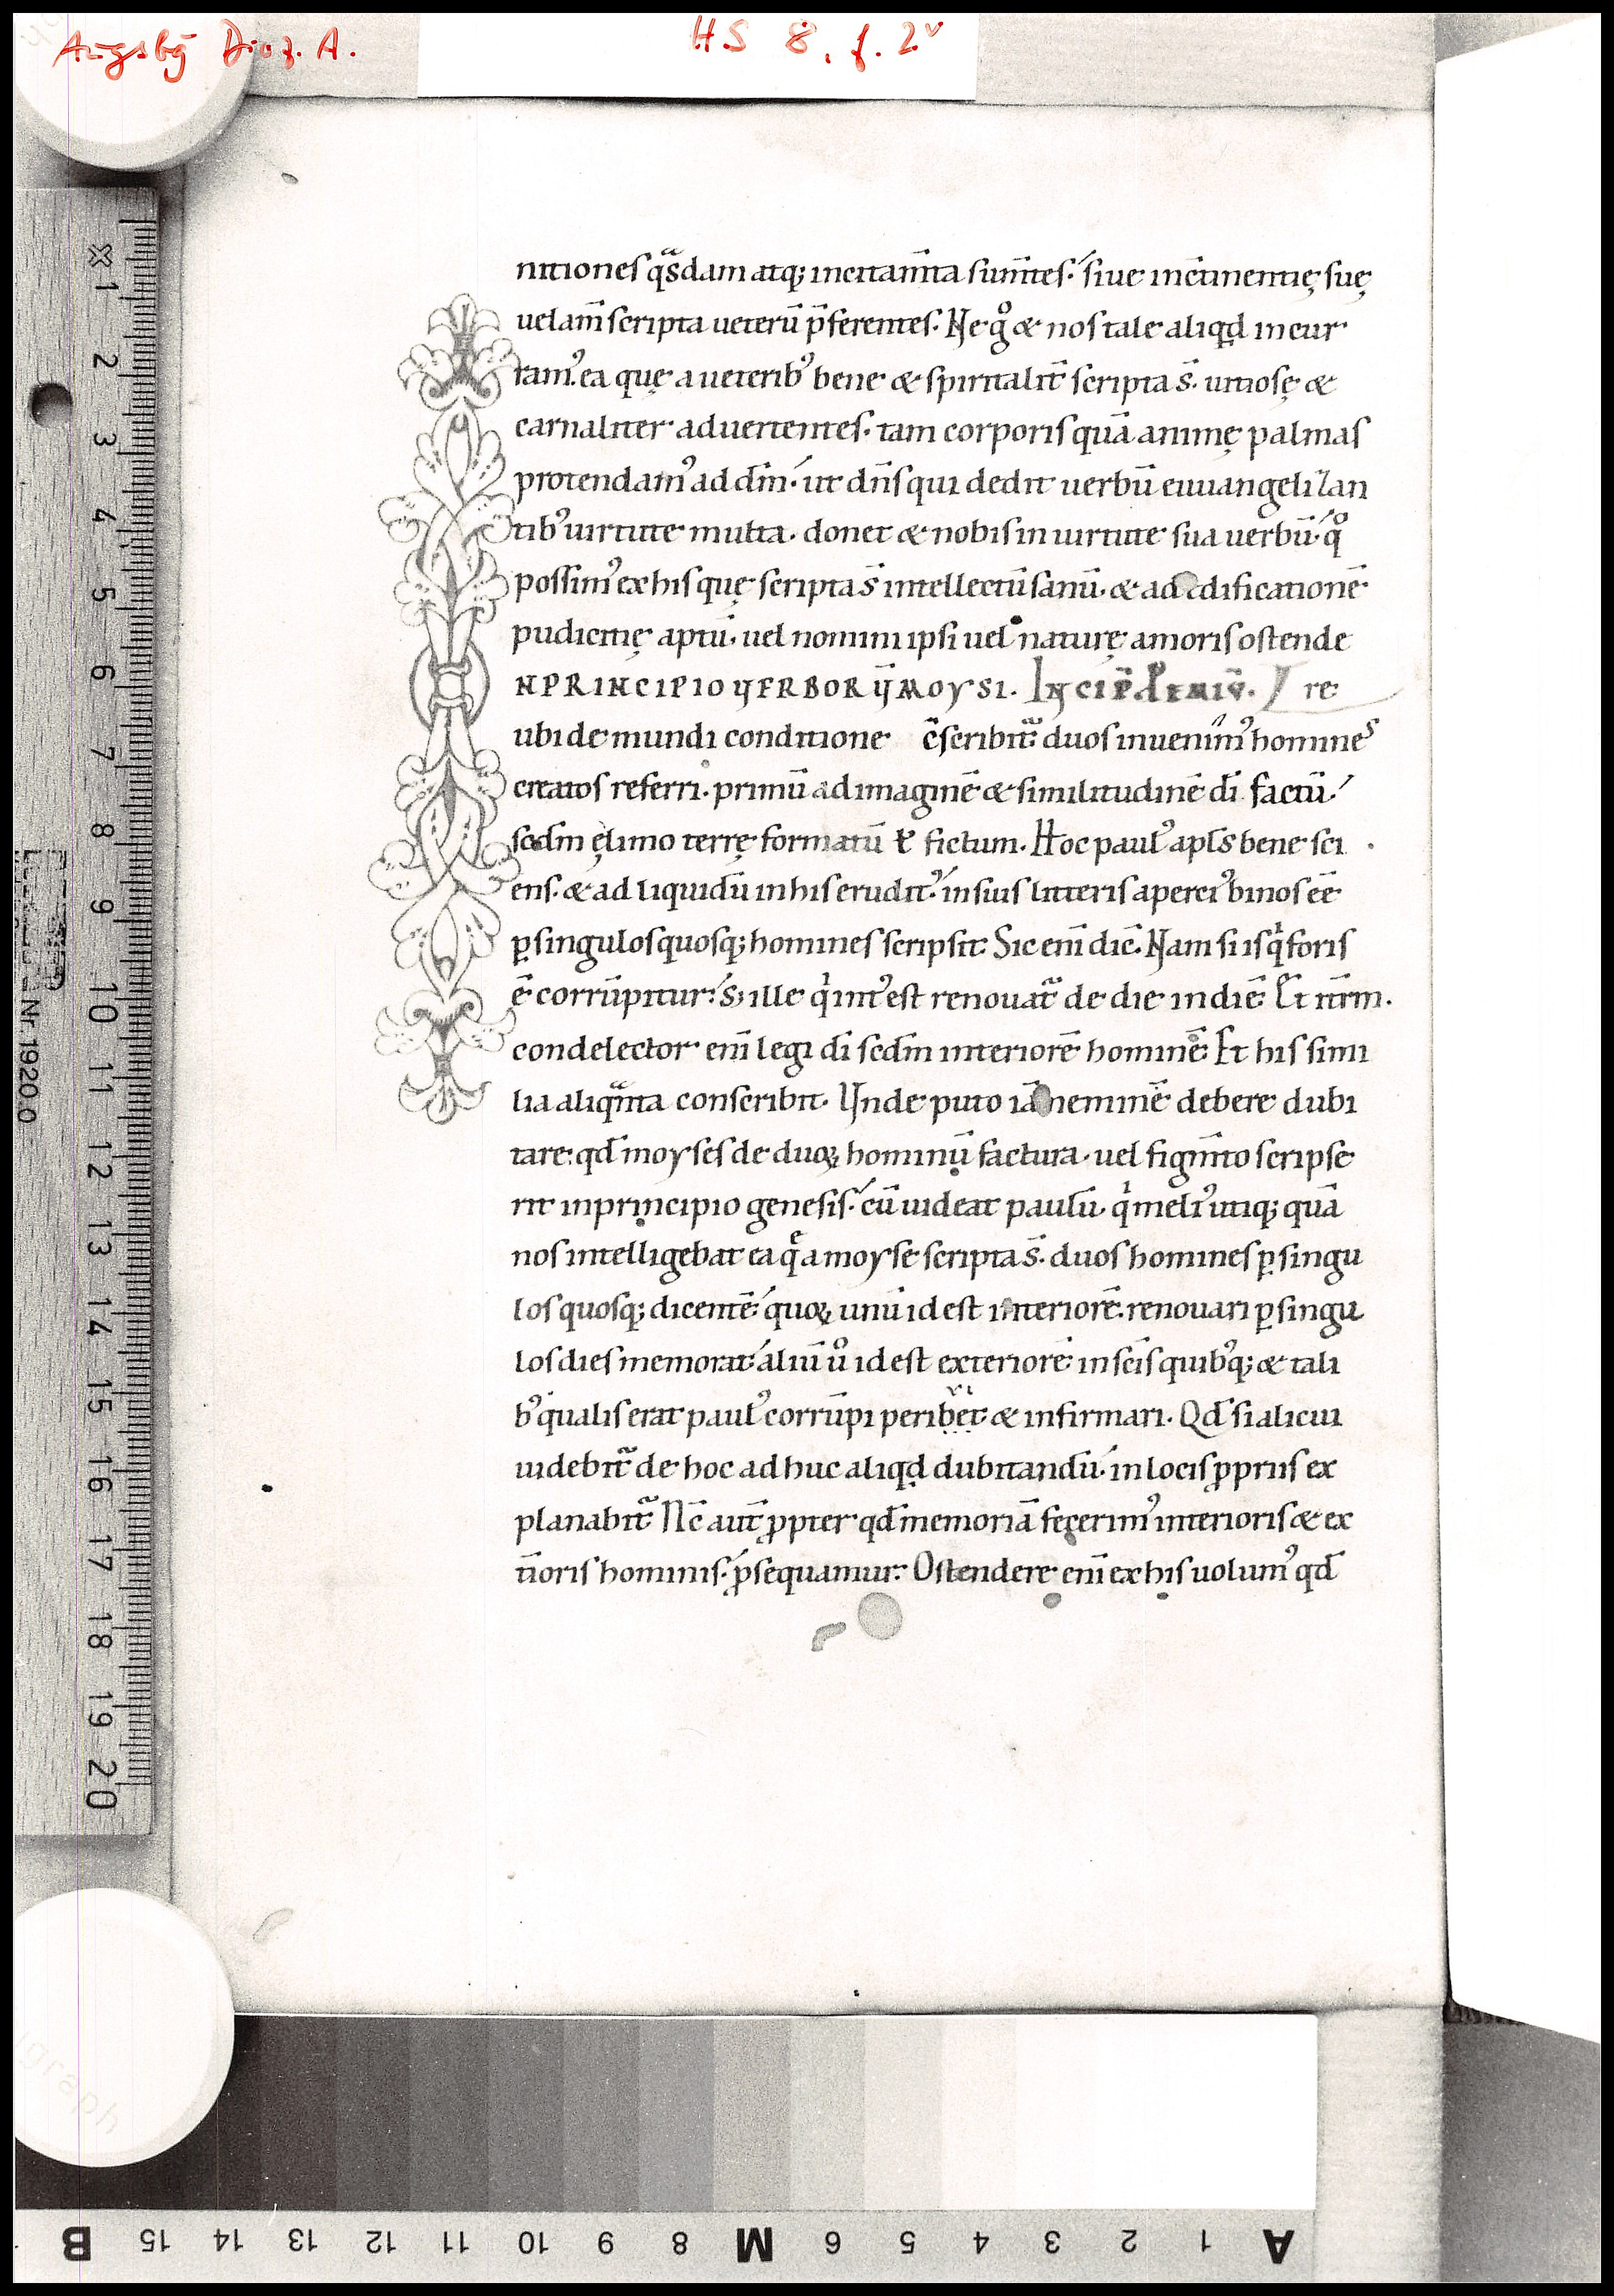 Augsbg Diöz. A.
HS 8, f. 2v
nitiones q̄sdam atq; incitam̄ta sum̄tes. siue incōtinentię suę
uelam̄ scripta ueterū p̄ferentes. Ne g̊ & nos tale aliqd incur
ram᾽. ea quę a ueterib᾽ bene & spiritalit̄ scripta s̄. uitiosę &
carnaliter aduertentes. tam corporis quā animę palmas
protendam᾽ ad dm̄. ut dn̄s qui dedit uerbū euuangelizan
tib᾽ uirtute multa. donet & nobis in uirtute sua uerbū. q̊
possim᾽ ex his quę scripta s̄ intellectū sanū. & ad ędificationē
pudicitię aptū. uel nomini ipsi uel naturę amoris ostende
N PRINCIPIO VERBORV̄ MOYSI. re
ubi de mundi conditione c̄scribit᷑ duos inuenim᾽ homines
creatos referri. primū ad imaginē & similitudinē dī factū.
scdm ę limo terrę formatū & fictum. Hoc paul᾽ apl̄s bene sci
ens. & ad liquidū in his erudit᾽. in suis litteris aperci᾽ binos eē
p̱ singulos quosq; homines scripsit. Sic eni dic̄. Nam si is qͥ foris
ē corrūpitur. s; ille qͥ int᾽ est renouat᷑ de die in diē. Et itrm.
condelector eni legi dī scdm interiorē hominē. Et his simi
lia aliqᵃnta conscribit. Unde puto iā neminē debere dubi
tare. qd̄ moyses de duoꝝ hominū factura. uel figm̄to scripse
rit in principio genesis. cū uideat paulū. qͥ meli᾽ utiq; quā
nos intelligebat ea q̄ a moyse scripta s̄. duos homines p̱ singu
los quosq; dicentē. quoꝝ unū id est interiorē. renouari p̱ singu
los dies memorat. aliū ů id est exteriorē. in scīs quib᾽q; & tali
b᾽ qualis erat paul᾽ corrūpi peribet & infirmari. Qd̄ si alicui
uidebit᷑ de hoc adhuc aliqd dubitandū. in locis ꝓpriis ex
planabit᷑. Nc̄ aut̄ ꝓpter qd̄ memoriā fecerim᾽ interioris & ex
t̄ioris hominis. ꝓsequamur. Ostendere eni ex his uolum᾽ qd̄
1 2 3 4 5 6 7 8 9 10 11 12 13 14 15 16 17 18 19 20
Nr. 1920.0
B 15 14 13 12 11 10 9 8 M 6 5 4 3 2 1 A